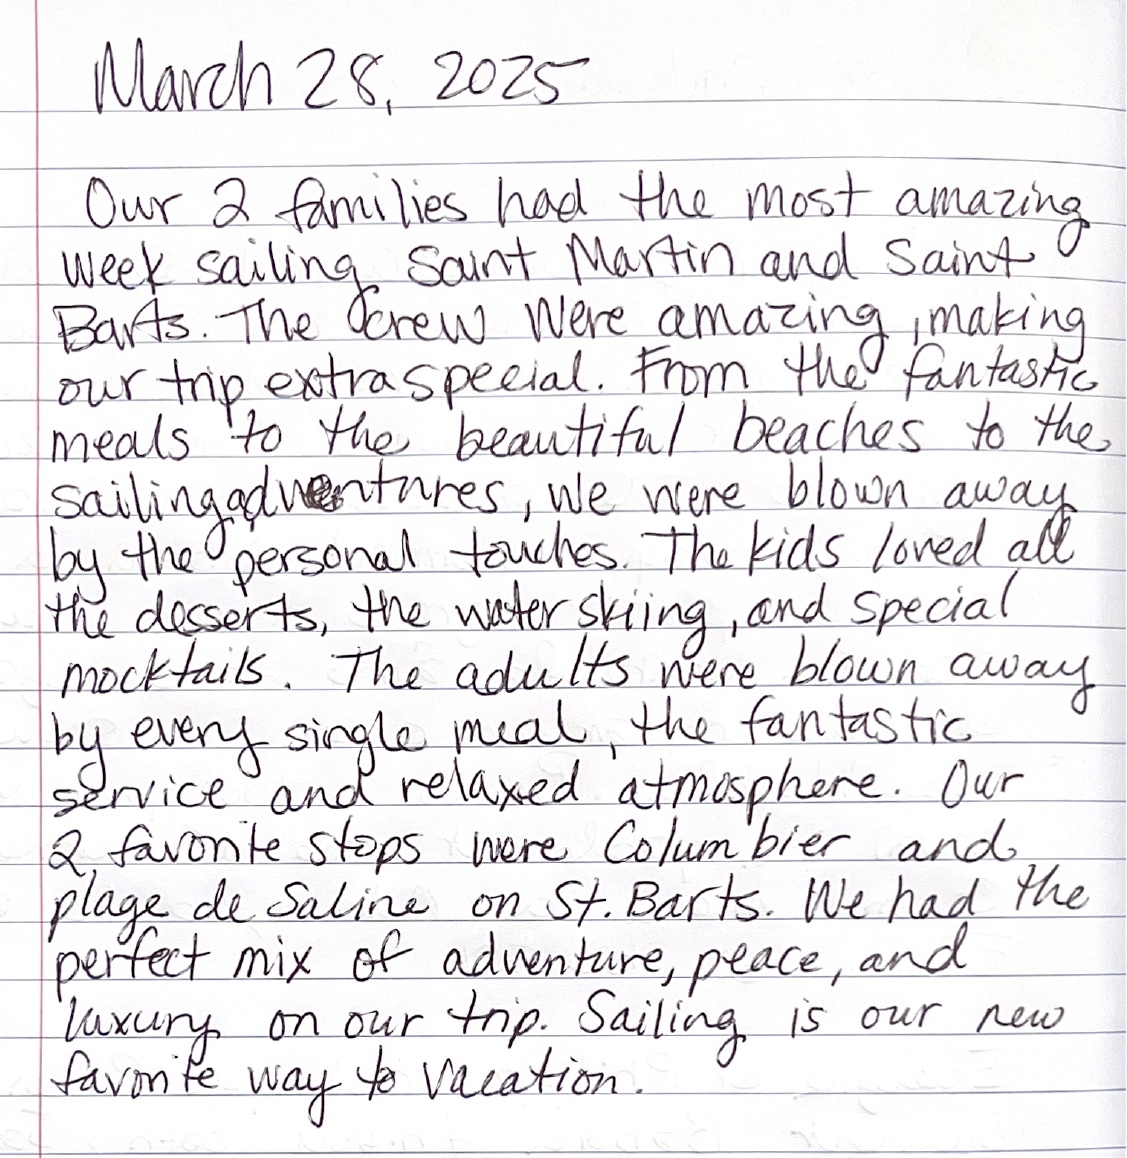 March 28, 2025
Our 2 families had the most amazing
week sailing Saint Martin and Saint
Barts. The crew were amazing, making
our trip extra special. From the fantastic
meals to the beautiful beaches to the
sailing adventures, we were blown away
by the personal touches. The kids loved all
the desserts, the water skiing, and special
mocktails. The adults were blown away
by every single meal, the fantastic
service and relaxed atmosphere. Our
2 favorite stops were Columbier and
plage de Saline on St. Barts. We had the
perfect mix of adventure, peace, and
luxury on our trip. Sailing is our new
favorite way to vacation.